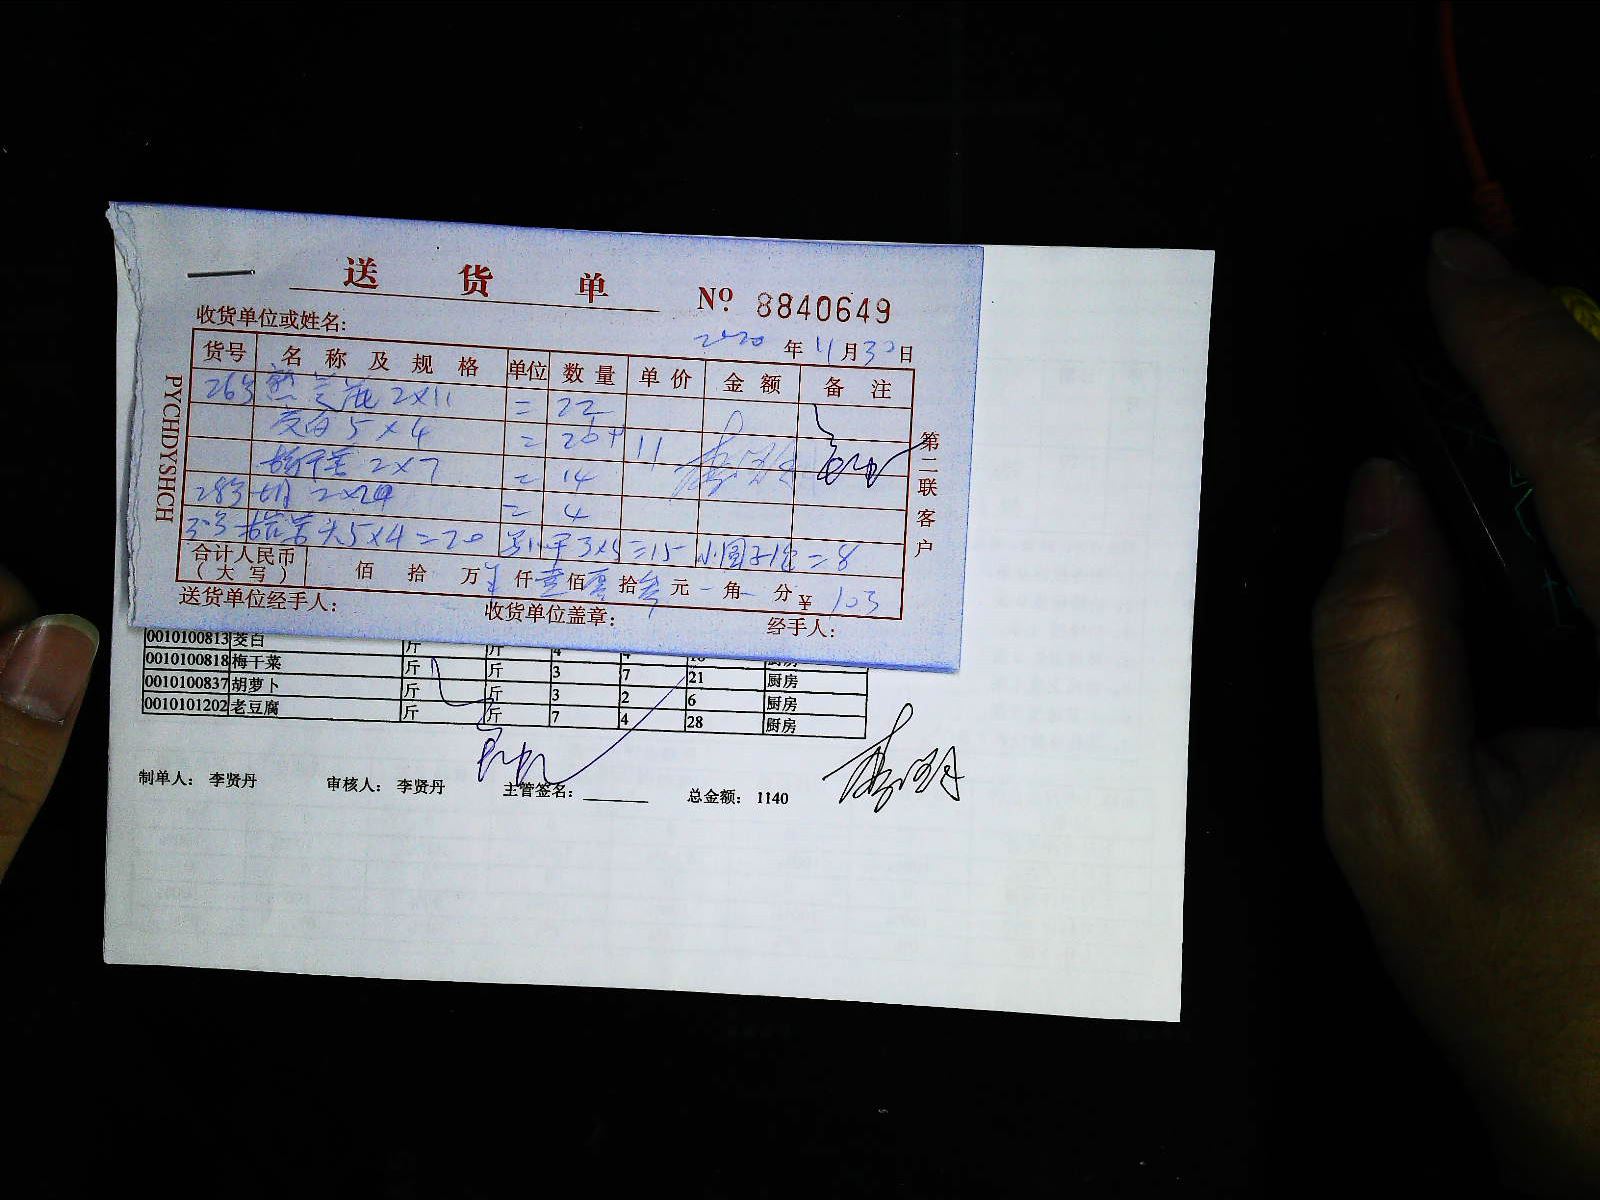 送 货 单
№ 8840649
收货单位或姓名:
2020 年 11 月 30 日
货号 名 称 及 规 格 单位 数 量 单 价 金 额 备 注
26号 2×11 = 22
茭白 5×4 = 20 11
梅干菜 2×7 = 14
28号 胡 = 4
30号 5×4=20 3×5=15 =8
合计人民币
(大 写) 佰 拾 万 仟 壹 佰 零 拾 叁 元 角 分 ¥ 103
送货单位经手人: 收货单位盖章: 经手人:
PYCHDYSHCH
第二联客户
0010100813 茭白 斤 斤 4 4 16 厨房
0010100818 梅干菜 斤 斤 3 7 21 厨房
0010100837 胡萝卜 斤 斤 3 2 6 厨房
0010101202 老豆腐 斤 斤 7 4 28 厨房
制单人: 李贤丹 审核人: 李贤丹 主管签名: 总金额: 1140